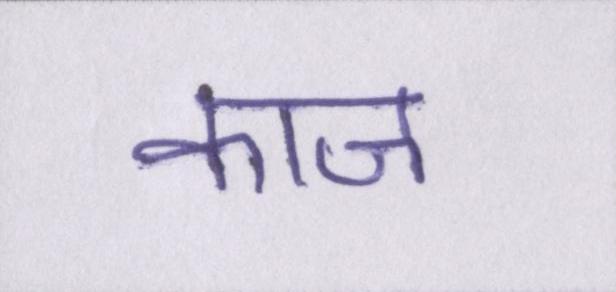 काज